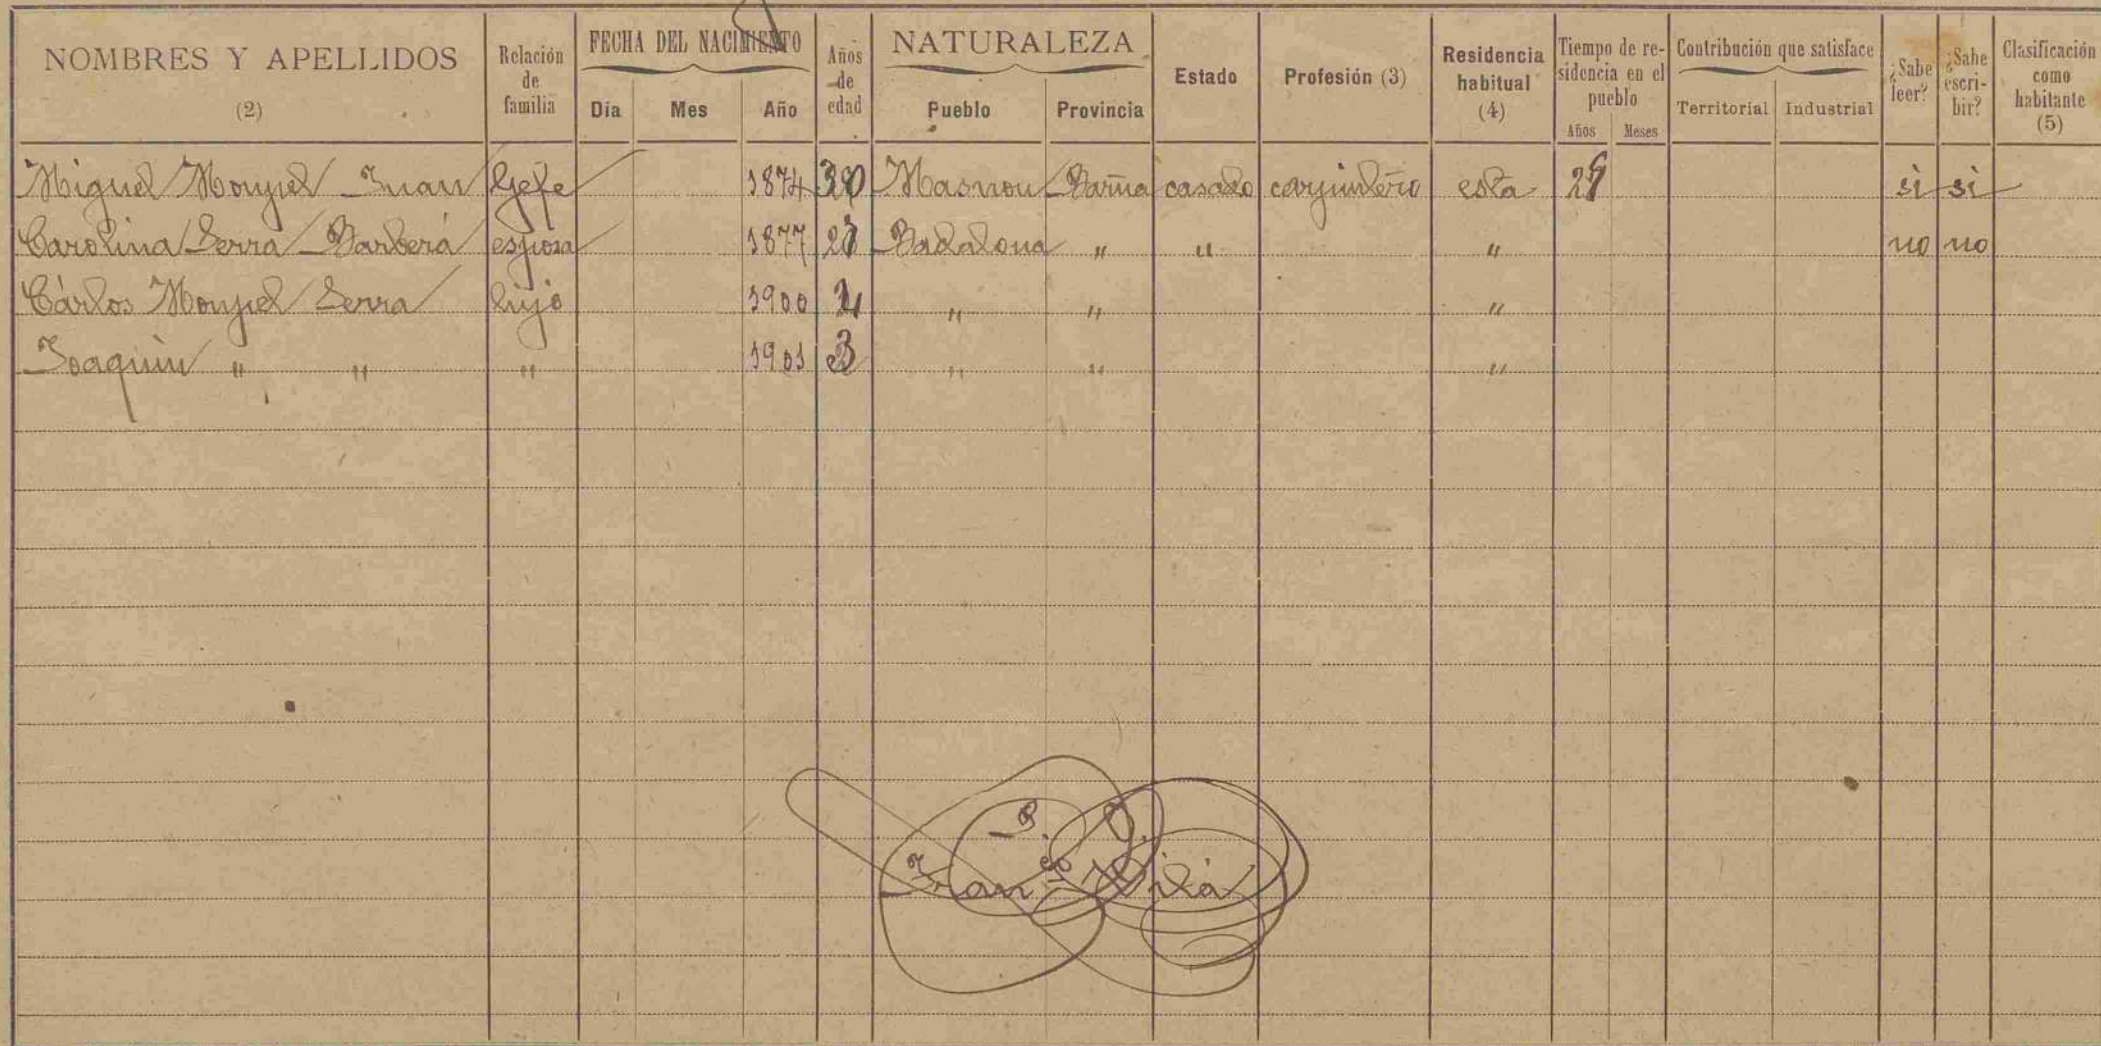 NOMBRES Y APELLIDOS (2) Relación de familia FECHA DEL NACIMIENTO Día Mes Año Años de edad NATURALEZA Pueblo Provincia Estado Profesión (3) Residencia habitual (4) Tiempo de residencia en el pueblo Años Meses Contribución que satisface Territorial Industrial ¿Sabe leer? ¿Sabe escribir? Clasificación como habitante (5)
Miguel Monpel Juan Gefe 1874 30 Masnou Barña casado carpintero esta si si
Carolina Serra Barberá esposa 1877 Badalona " " " no no
Cárlos Monpel Serra hijo 1900 " " "
Joaquin " " " 1901 3 " " "
P. O.
Franco Vilá